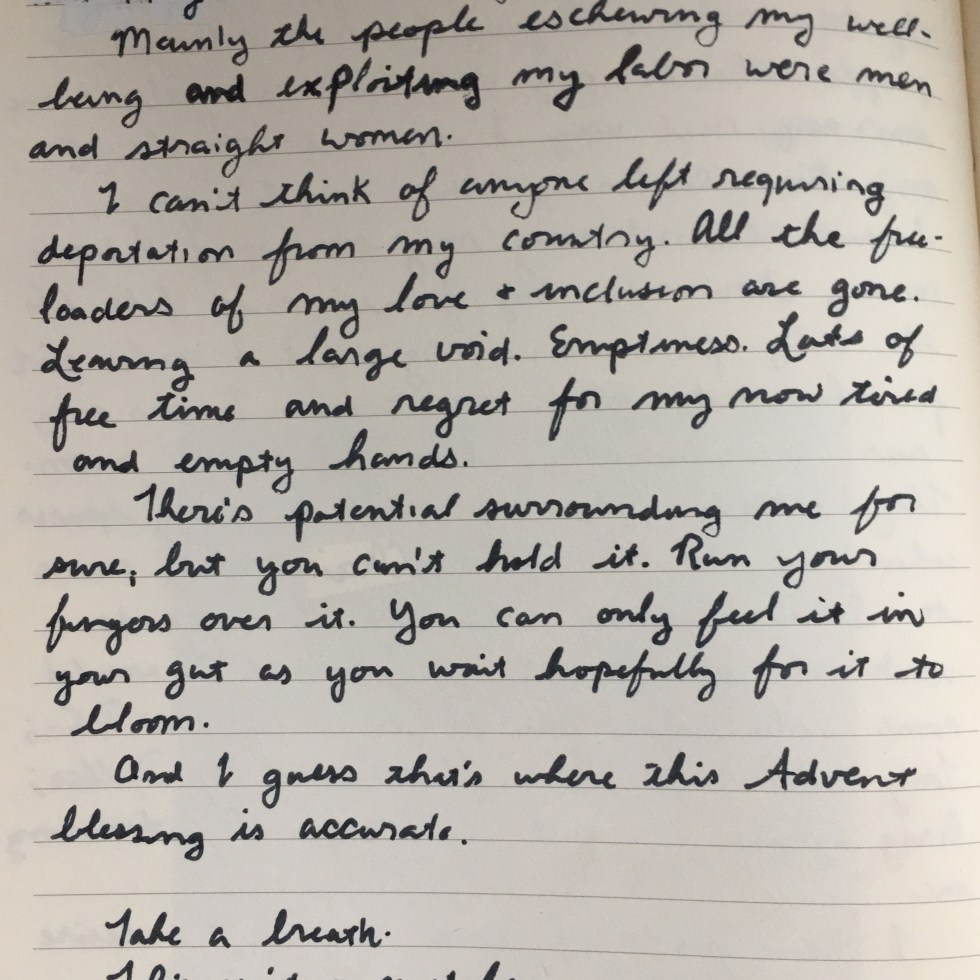 Mainly the people eschewing my well-
being and exploiting my labor were men
and straight women.
I can't think of anyone left requiring
deportation from my country. All the free-
loaders of my love & inclusion are gone.
Leaving a large void. Emptiness. Lots of
free time and regret for my now tired
and empty hands.
There's potential surrounding me for
sure, but you can't hold it. Run your
fingers over it. You can only feel it in
your gut as you wait hopefully for it to
bloom.
And I guess that's where this Advent
blessing is accurate.
Take a breath.